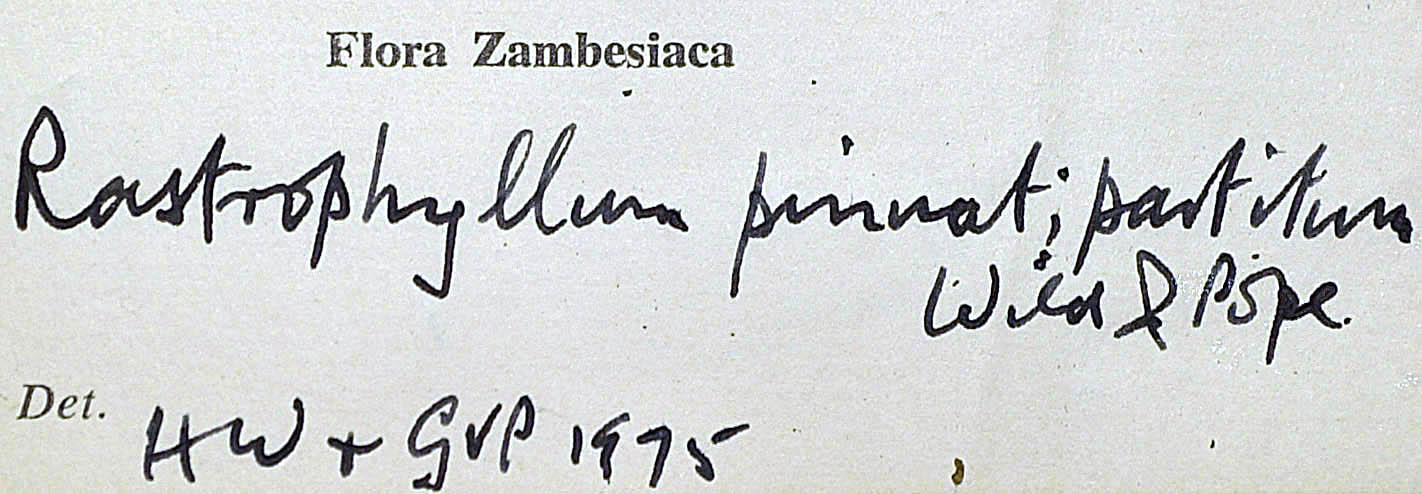 Flora Zambesiaca
Rastrophyllum pinnatipartitum
Wild & Pope.
Det. HW + GVP 1975